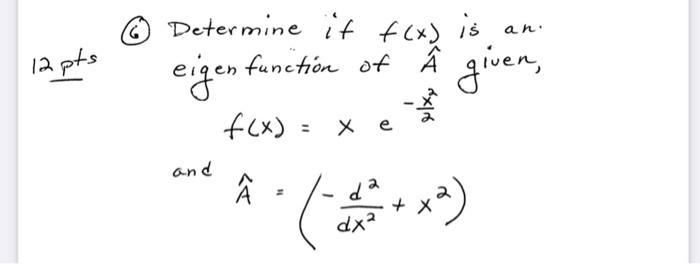 ⑥ Determine if f(x) is an.
12 pts eigenfunction of Â given,
f(x) = x e^(-x²/2)
and Â = (-d²/dx² + x²)